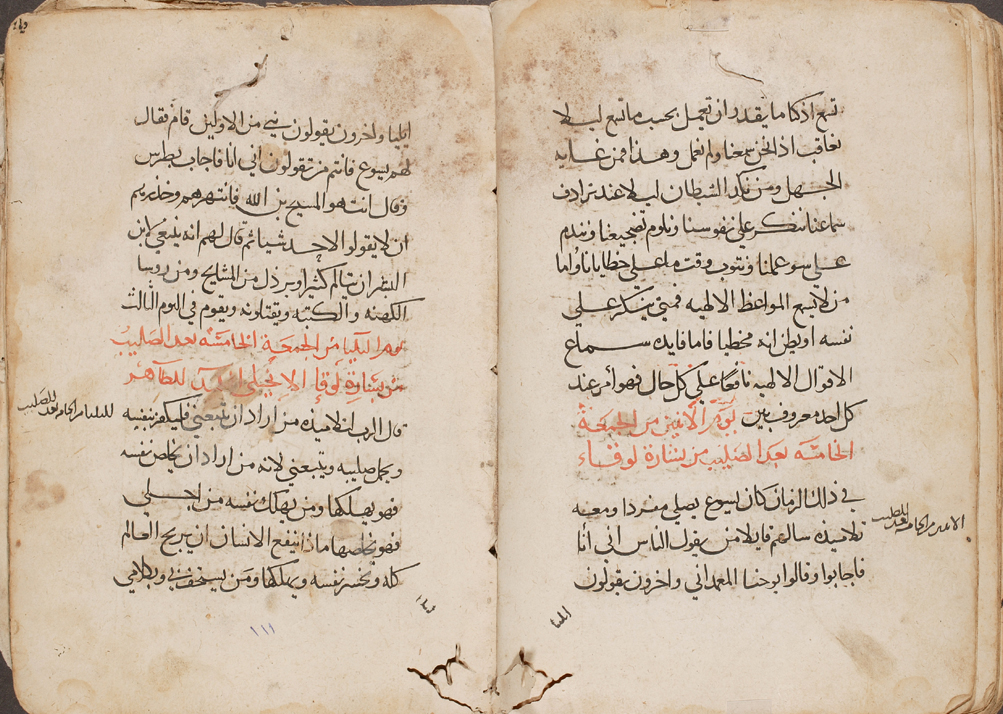 نسمع اذ كنا ما يقدر ان نعمل بحسب ما نسمع ليلا
نعاقب اذ نحن سمعنا ولم نعمل وهذا فمن غايه
الجهل ومن نكد الشيطان ليلا عند ترادف
سماعنا ننكر علي نفوسنا ونلوم تضجيعنا ونندم
علي سو عملنا ونتوب وقت ما علي خطايانا واما
من لا يسمع المواعظ الالهيه فمتي ينكر علي
نفسه او يظن انه مخطيا فاما فايده سماع
الاقوال الالهيه نافعا علي كل حال فهو أمر عند
كل احد معروف بين يوم الاثنين من الجمعة
الخامسة بعد الصليب من بشارة لوقاء
في ذلك الزمان كان يسوع يصلي منفردا ومعه
تلاميذه سالهم قايلا من يقول الناس اني أنا
فاجابوا وقالوا يوحنا المعمداني واخرون يقولون
ايليا
ايليا واخرون يقولون نبي من الاولين قام فقال
لهم يسوع فأنتم من تقولون أني انا فاجاب بطرس
وقال انت هو المسيح بن الله فانتهرهم وحذرهم
أن لا يقولوا لاحد شيا ثم قال لهم انه ينبغي لابن
البشر ان يتالم كثيرا ويرذل من المشايخ ومن روسا
الكهنه والكتبه ويقتلونه ويقوم في اليوم الثالث
يوم الثلثا من الجمعة الخامسة بعد الصليب
من بشارة لوقاء الانجيلي التلميذ الطاهر
قال الرب لتلاميذه من اراد ان يتبعني فليكفر بنفسه
ويحمل صليبه ويتبعني لانه من اراد ان يخلص نفسه
فهو يهلكها ومن يهلك نفسه من اجلي
فهو يخلصها ماذا ينفع الانسان ان يربح العالم
كله ويخسر نفسه ويهلكها ومن يستخف بي وبكلامي
١١١